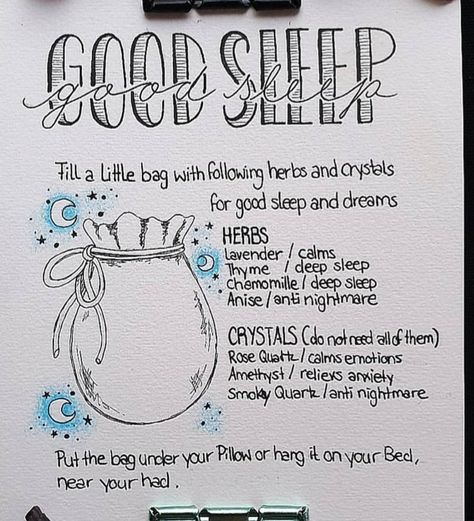 GOOD SLEEP
good sleep
Fill a little bag with following herbs and crystals
for good sleep and dreams
HERBS
Lavender / calms
Thyme / deep sleep
Chamomille / deep sleep
Anise / anti nightmare
CRYSTALS (do not need all of them)
Rose Quartz / calms emotions
Amethyst / relievs anxiety
Smoky Quartz / anti nightmare
Put the bag under your Pillow or hang it on your Bed,
near your had.